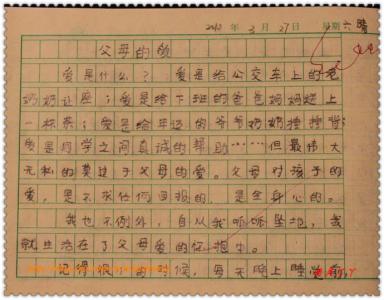 年 3 月 27 日 星期六 晴
父母的爱
爱是什么？爱是给公交车上的老
奶奶让座；爱是给下班的爸爸妈妈递上
一杯茶；爱是给年迈的爷爷奶奶捶捶背；
爱是同学之间真诚的帮助……但最伟大
无私的莫过于父母的爱。父母对孩子的
爱，是不求任何回报的，是全身心的。
我也不例外，自从我呱呱坠地，我
就生活在了父母爱的怀抱中。
记得很 的时候，每天晚上睡觉前